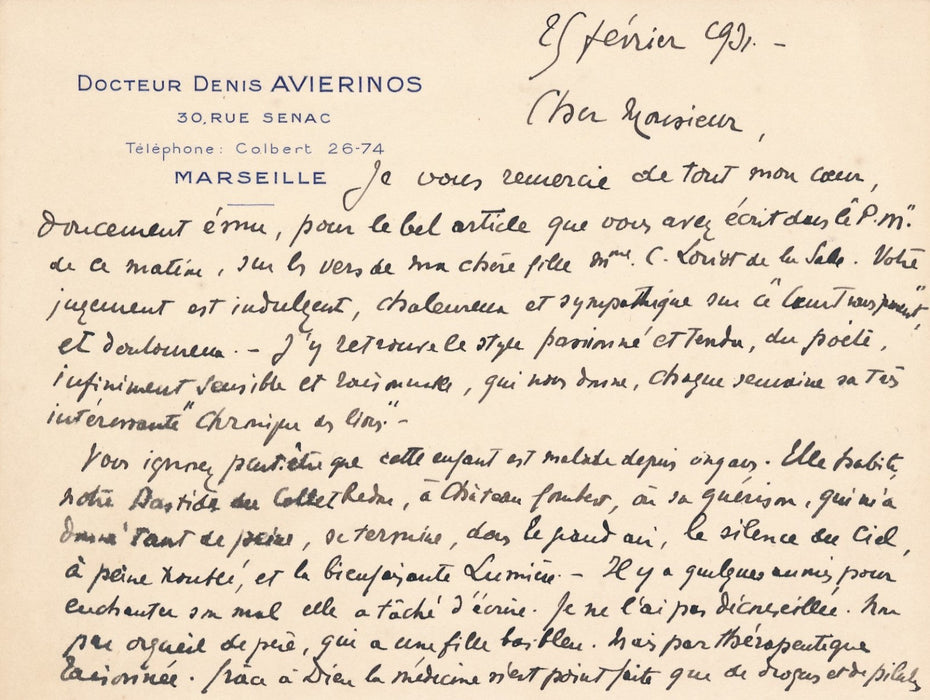 25 février 1931. -
DOCTEUR DENIS AVIERINOS
30, RUE SENAC
Téléphone: Colbert 26-74
MARSEILLE
Cher Monsieur,
Je vous remercie de tout mon cœur,
doucement ému, pour le bel article que vous avez écrit dans le "P.M."
de ce matin, sur les vers de ma chère fille Mme. C. Loriot de la Salle. Votre
jugement est indulgent, chaleureux et sympathique sur ce
et douloureux. - J'y retrouve le style passionné et tendre, du poète,
infiniment sensible et qui nous donne, chaque semaine sa très
intéressante "Chronique des livres" -
Vous ignorez peut-être que cette enfant est malade depuis onze ans. Elle habite,
notre Bastide du à Château Gombert, où sa guérison, qui m'a
donné tant de peine, se termine, dans le grand air, le silence du Ciel,
à peine troublé, et la bienfaisante Lumière. - Il y a quelques années pour
enchanter son mal elle a tâché d'écrire. Je ne l'ai pas déconseillée. Non
par orgueil de père, qui a une fille bas bleu. Mais par thérapeutique
raisonnée. Grâce à Dieu la médecine n'est point faite que de drogues et de pilules